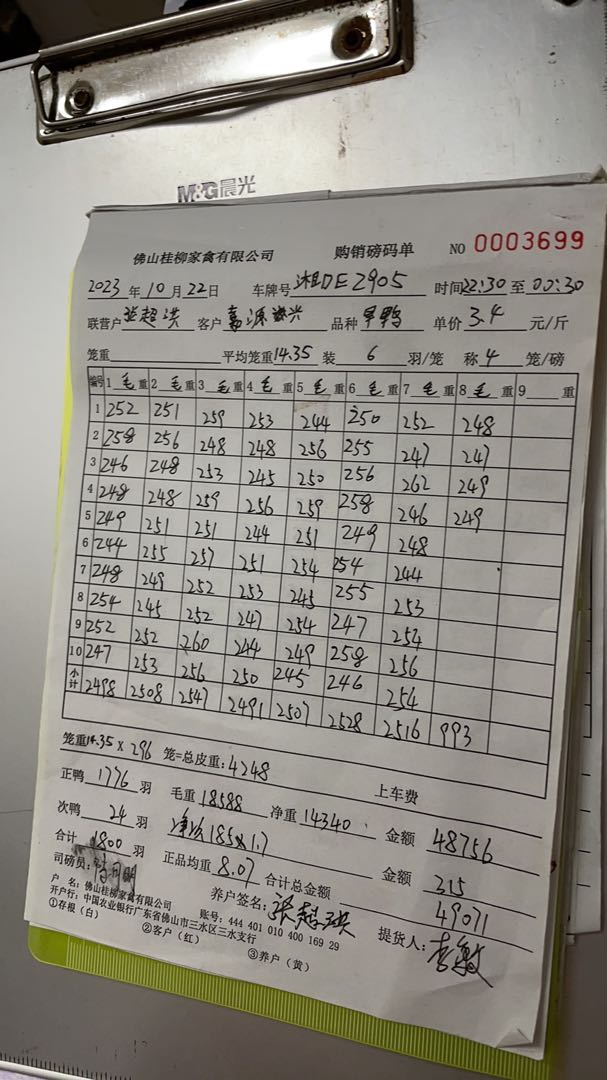 M&G晨光
佛山桂柳家禽有限公司 购销磅码单 NO 0003699
2023年10月22日 车牌号 湘DE2905 时间22:30至00:30
联营户 张超洪 客户 嘉源 品种 旱鸭 单价 3.4 元/斤
笼重 平均笼重14.35 装 6 羽/笼 称 4 笼/磅
编号 1毛重 2毛重 3毛重 4毛重 5毛重 6毛重 7毛重 8毛重 9 重
1 252 251 259 253 244 250 252 248
2 258 256 248 248 256 255 247 247
3 246 248 253 245 250 256 262 249
4 248 248 259 256 259 258 246 249
5 249 251 251 244 251 249 248
6 244 255 257 251 254 254 244
7 248 249 252 253 245 255 253
8 254 245 252 247 254 247 254
9 252 252 260 244 249 258 256
10 247 253 256 250 245 246 254
小计 2498 2508 2547 2491 2507 2528 2516 993
笼重14.35×296 笼=总皮重:4248 上车费
正鸭 1776 羽 毛重 18588 净重 14340 金额 48756
次鸭 24 羽 185×1.7 金额 315
合计 1800 羽 正品均重 8.07 合计总金额 49071
司磅员: 养户签名:张超洪 提货人:李敏
户 名:佛山桂柳家禽有限公司
开户行:中国农业银行广东省佛山市三水区三水支行 账号:444 401 010 400 169 29
①存根(白) ②客户(红) ③养户(黄)